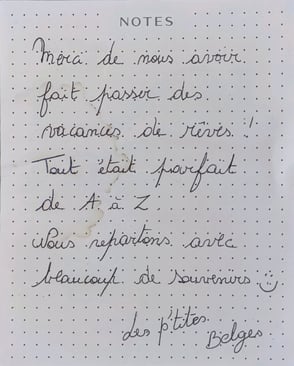 NOTES
Merci de nous avoir
fait passer des
vacances de rêves !
Tout était parfait
de A à Z
Nous repartons avec
beaucoup de souvenirs ☺
des p'tites
Belges